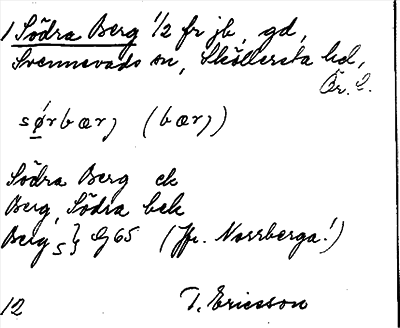 1 Södra Berg 1/2 fr jb, gd,
Svennevads sn, Sköllersta hd,
Ör. l.
sørbærj (bærj)
Södra Berg ek
Berg, Södra bek
Berg s} G 65 (Jfr. Norrberga!)
12 T. Ericsson